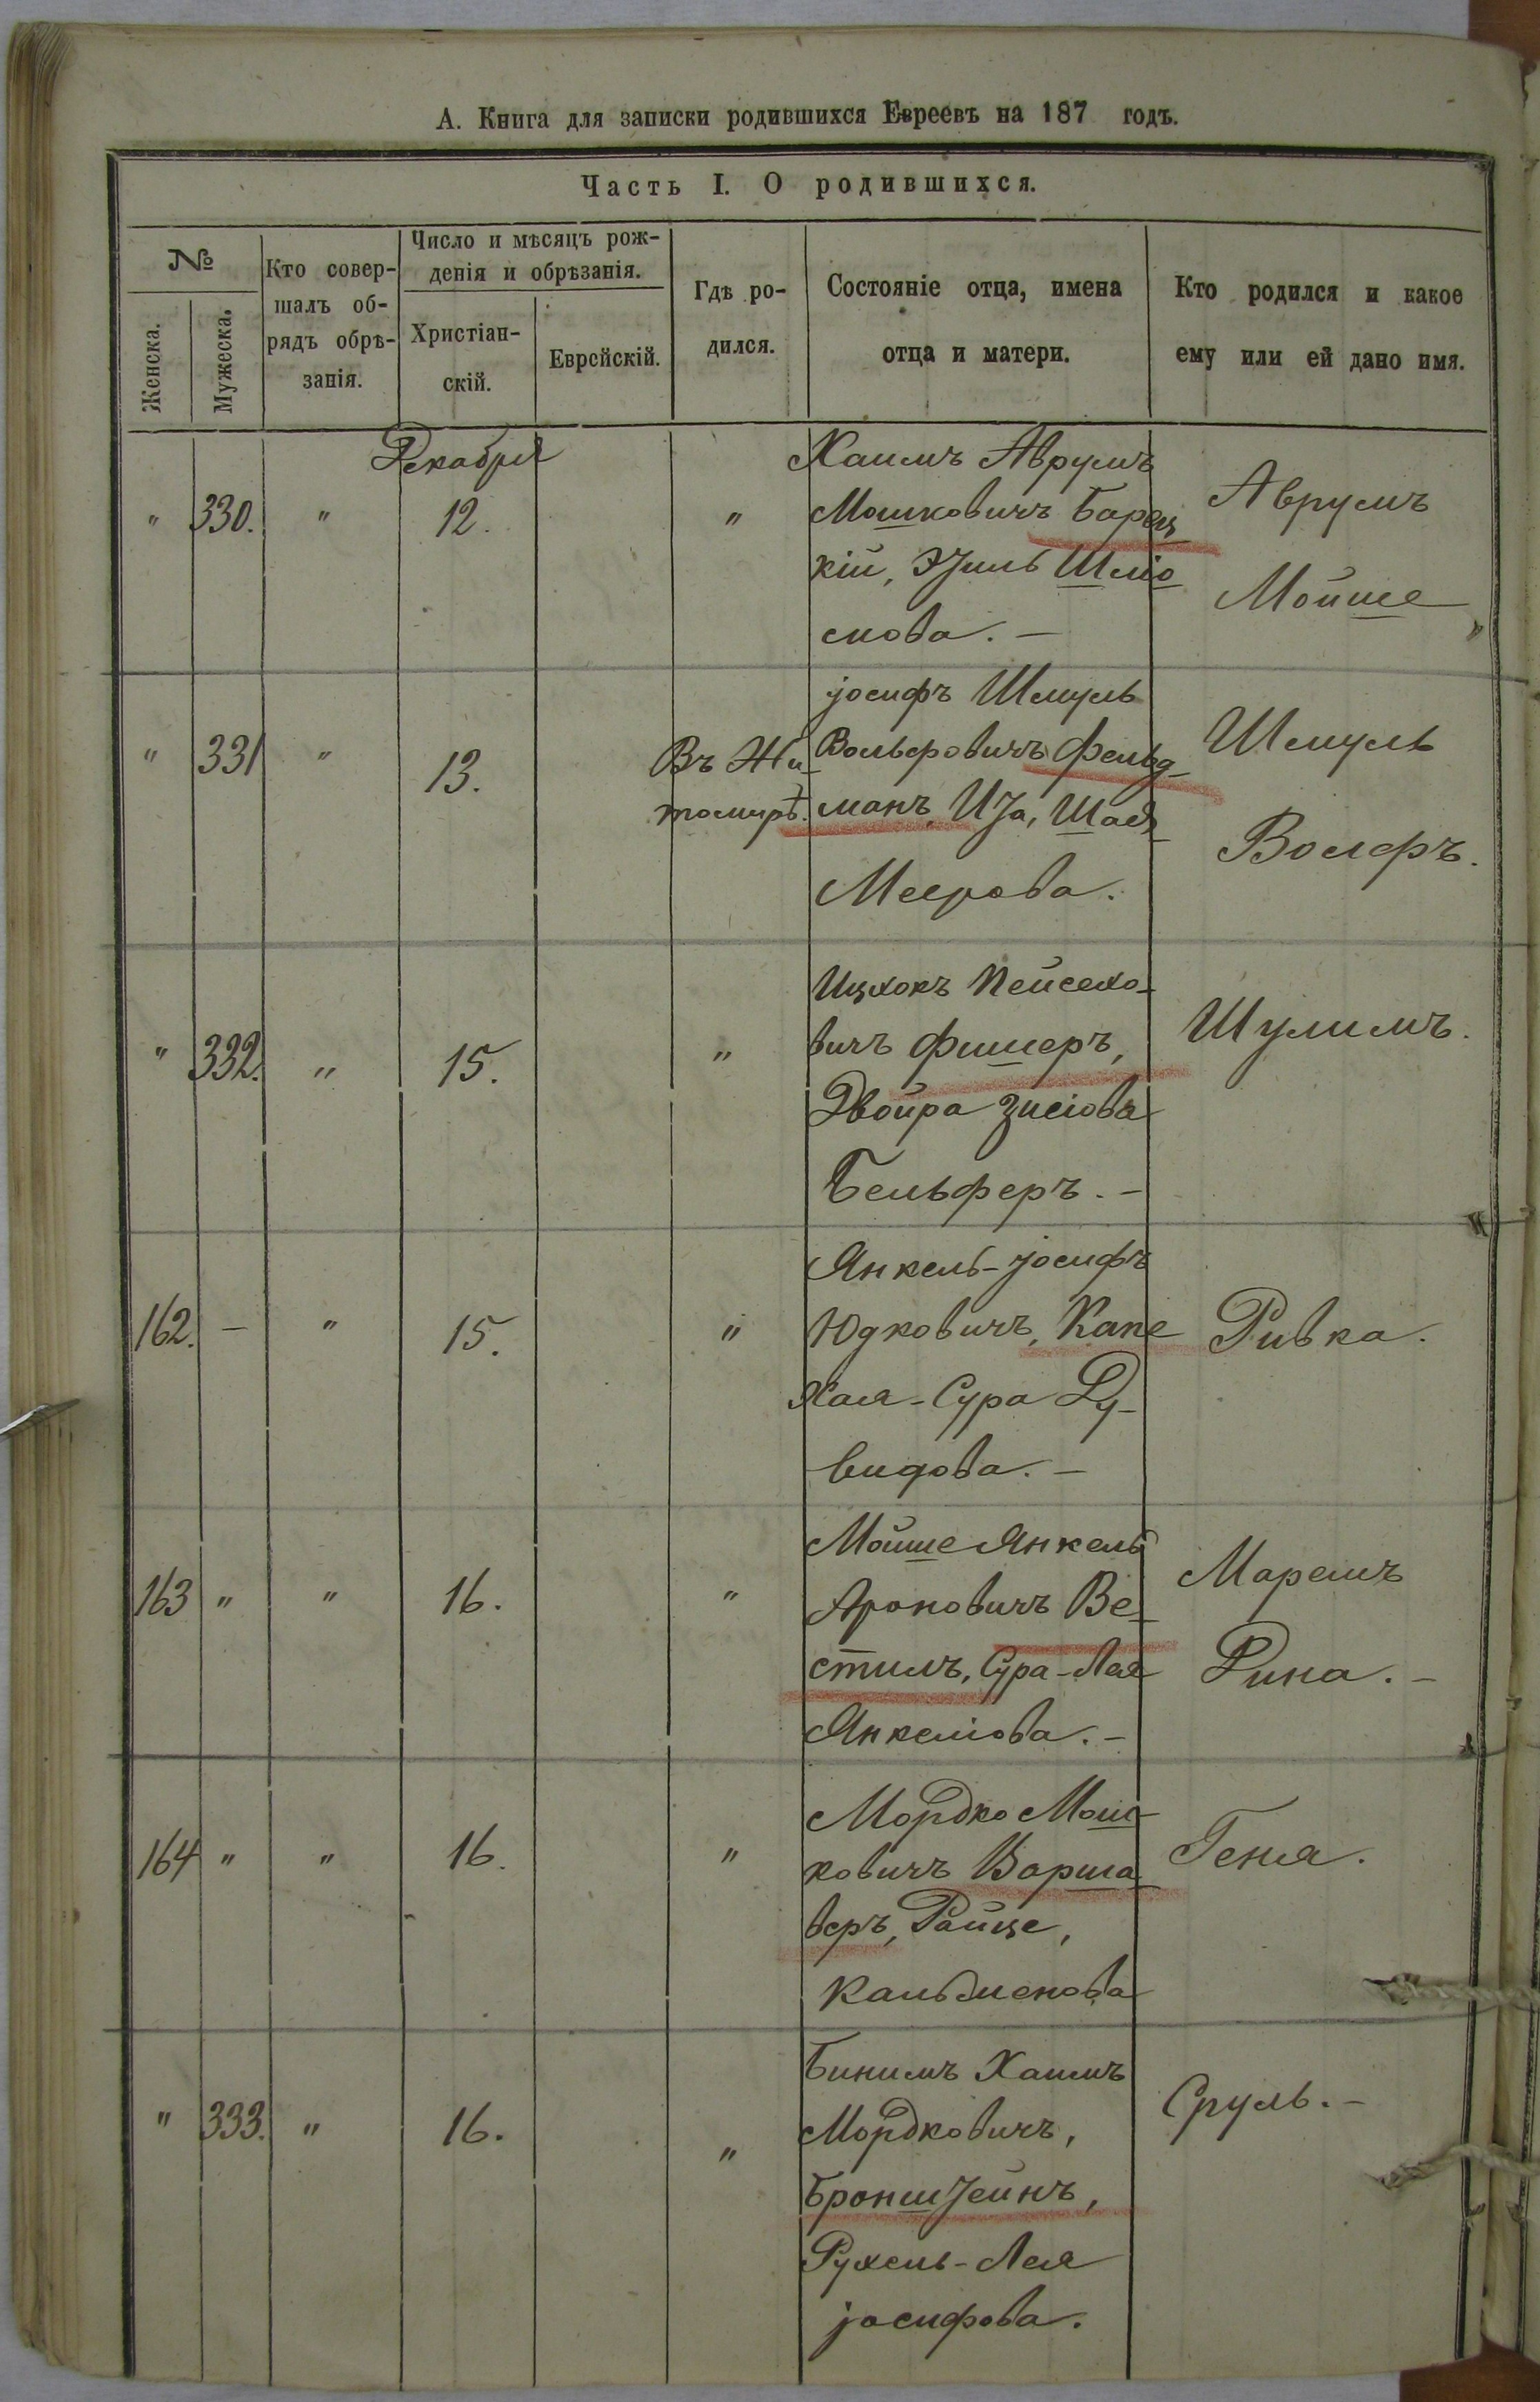 А. Книга для записки родившихся Евреевъ на 187 годъ.
Часть I. О родившихся.
№
Женска.
Мужеска.
Кто совер-
шалъ об-
рядъ обрѣ-
занія.
Число и мѣсяцъ рож-
денія и обрѣзанія.
Христіан-
скій.
Еврейскій.
Гдѣ ро-
дился.
Состояніе отца, имена
отца и матери.
Кто родился и какое
ему или ей дано имя.
Декабря
" 330. " 12. "
Хаимъ Аврумъ
Мошковичъ Барец
кій, Шліо
мова. –
Аврумъ
Мойше
" 331 " 13.
Въ Жи-
томирѣ.
Іосифъ Шмуль
Вольфовичъ Фельд-
манъ, Ита, Шая
Меерова.
Шмуль
Волфъ.
" 332. " 15. "
Ицхокъ Пейсехо-
вичъ Фишеръ,
Двойра Зисіова
Бельферъ. –
Шулимъ.
162. – " 15. "
Янкель-Іосифъ
Юдковичъ, Капе
Хая-Сура Ду-
видова. –
Ривка.
163 " " 16. "
Мойше Янкель
Ароновичъ Ве-
стилъ, Сура-Лея
Янкеліова. –
Маремъ
Дина. –
164 " " 16. "
Мордко Мош-
ковичъ Варша
веръ, Райце,
Кальменова
Геня.
" 333. " 16. "
Бинимъ Хаимъ
Мордковичъ,
Бронштейнъ,
Рухель-Лея
Іосифова.
Сруль. –